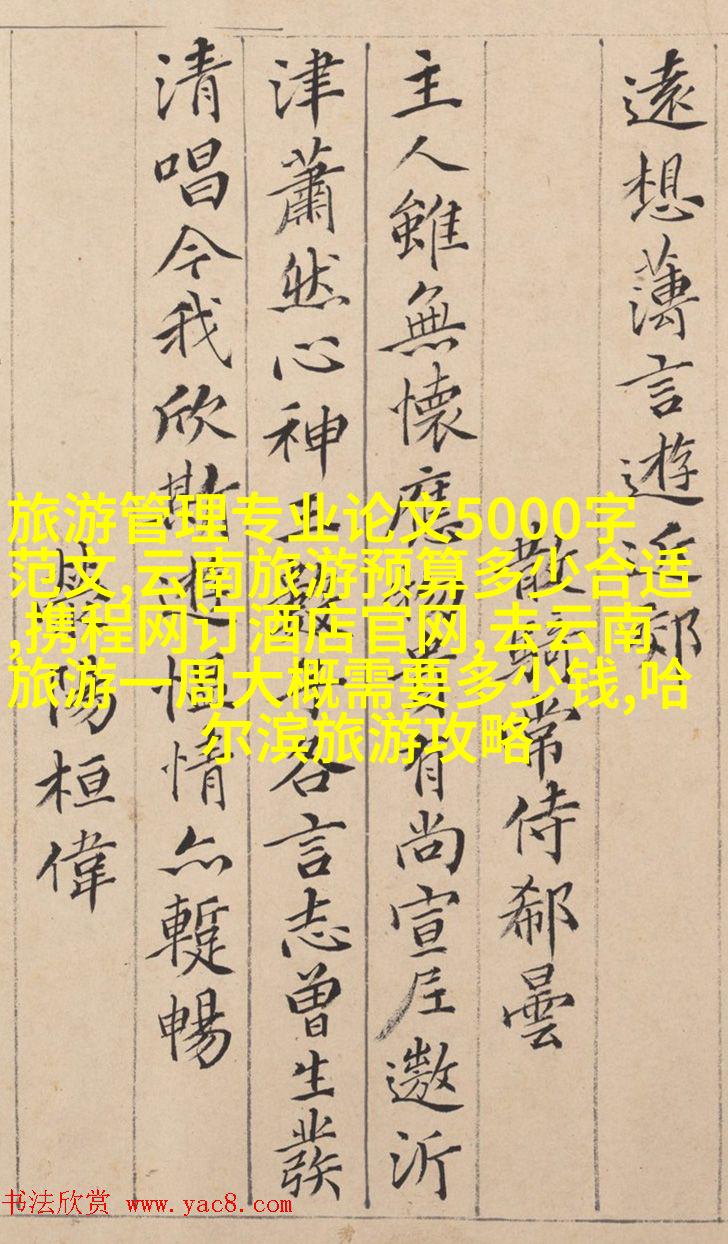 遠想薄言遊近郊
散騎常侍郗曇
主人雖無懷應物貴有尚宣尼遨沂
津蕭然心神王數子各言志曾生發
清唱今我欣斯遊慍情亦蹔暢
滎陽桓偉
旅游管理专业论文5000字
范文,云南旅游预算多少合适
,携程网订酒店官网,去云南
旅游一周大概需要多少钱,哈
尔滨旅游攻略
书法欣赏 www.yac8.com